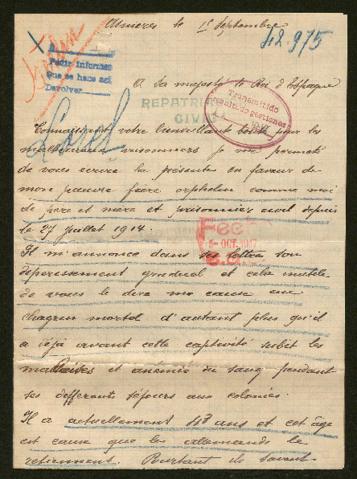 Asnieres le 1er Septembre
42.975
A
Pedir Informes
Que se hace acá
Devolver
A Sa majesté le Roi d'Espagne
Transmitido
REPATRI
CIVIL
Connaissant votre bienveillante bonté pour les
malheureux prisonniers je me permets
de vous écrire la présente en faveur de
mon pauvre frère orphelin comme moi
de père et mère et prisonnier civil depuis
le 27 Juillet 1914.
Fecf
5- OCT. 1917
Il m'annonce dans ses lettres son
dépérissement graduel et cela inutile
de vous le dire me cause un
chagrin mortel d'autant plus qu'il
a déjà avant cette captivité subit les
maladies et anémie du sang pendant
ses différents séjours aux colonies.
Il a actuellement 48 ans et cet âge
est cause que les allemands le
retiennent. Pourtant ils savent